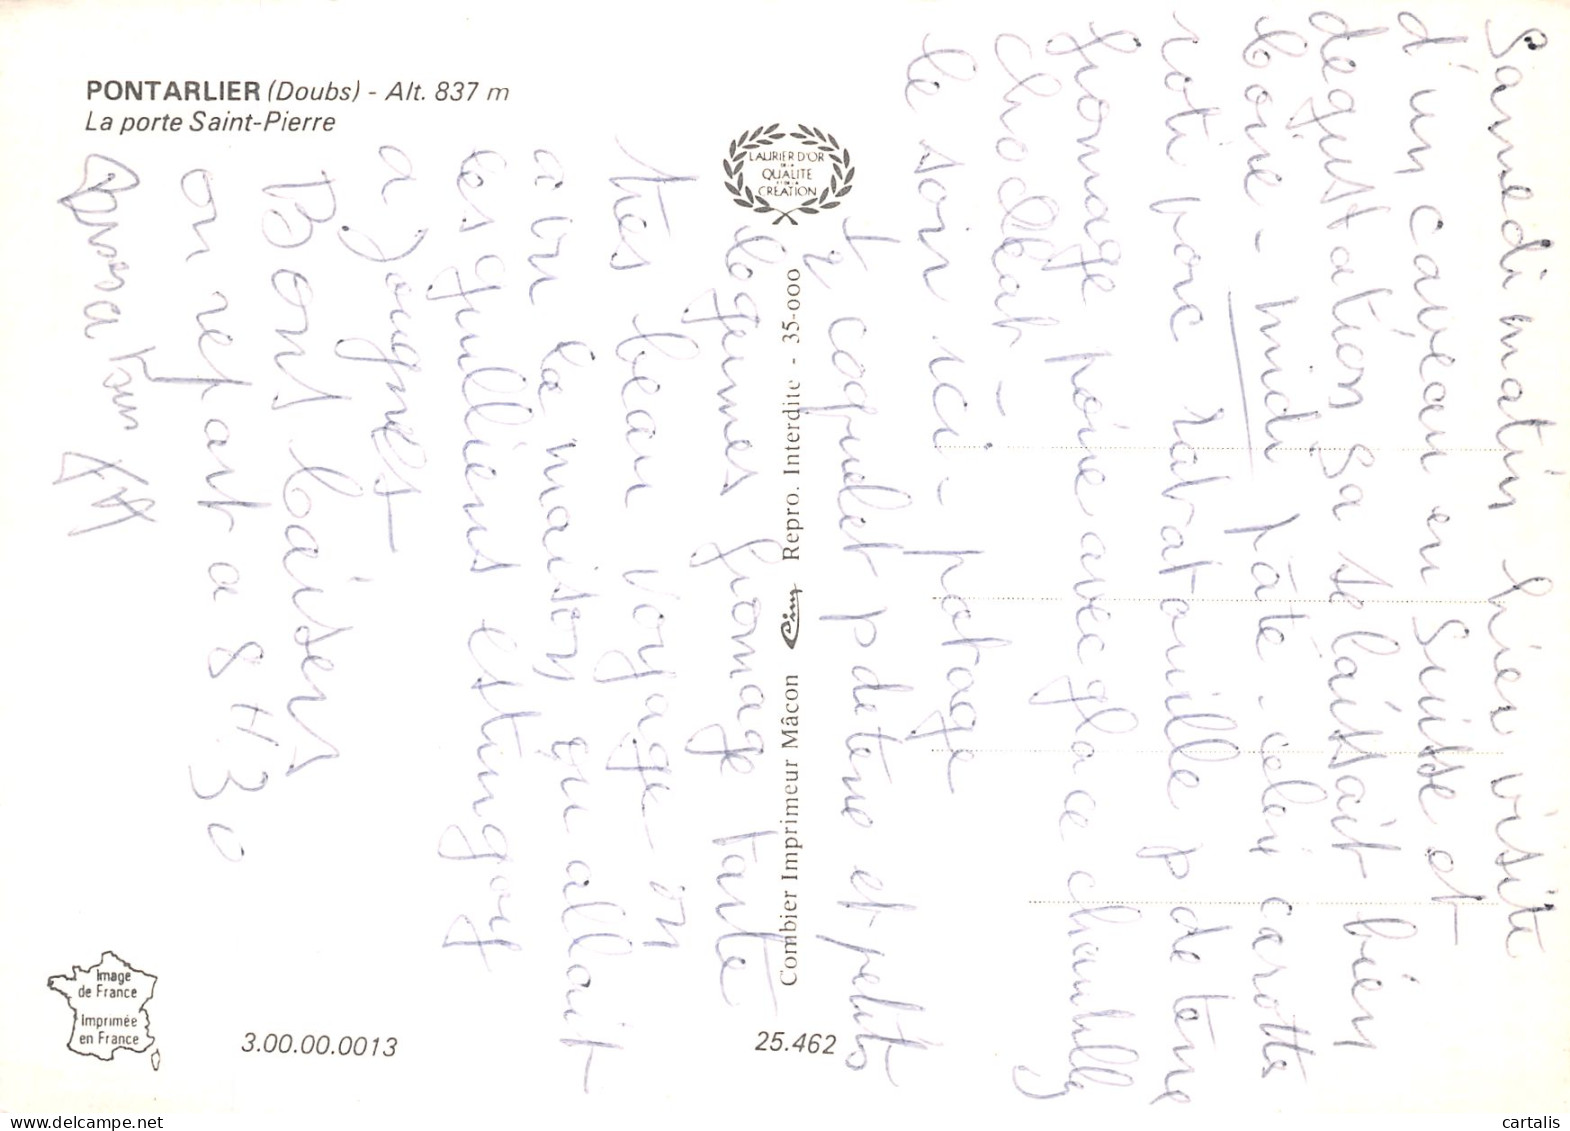 PONTARLIER (Doubs) - Alt. 837 m
La porte Saint-Pierre
LAURIER D'OR
DE LA
QUALITE
ET DE LA
CREATION
Combier Imprimeur Mâcon Cim Repro. Interdite - 35-000
Image
de France
Imprimée
en France
3.00.00.0013
25.462
Samedi matin hier visite
d'un caveau en Suisse et
degustation sa se laissait bien
boire - midi pâté - céleri carottes
roti porc ratatouille p de terre
fromage poire avec glace chantilly
chocolat -
le soir ici - potage
1/2 coquelet p de terre et petits
legumes fromage tarte
très beau voyage on
a vu la maison qu allait
les guilliens estingoy
a Jougnes
Bons baisers
on repart a 8 H 30